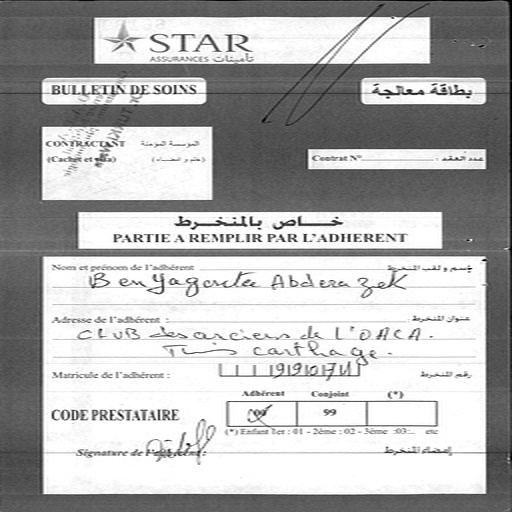 STAR
ASSURANCES تأمينات
BULLETIN DE SOINS بطاقة معالجة
CONTRACTANT المؤسسة المؤمنة
(Cachet et visa) (ختم و امضاء)
Contrat N° عدد العقد :
خاص بالمنخرط
PARTIE A REMPLIR PAR L'ADHERENT
Nom et prénom de l'adhérent إسم و لقب المنخرط
Ben Abderazek
Adresse de l'adhérent : عنوان المنخرط :
CLUB des anciens de L'OACA.
Tunis carthage.
Matricule de l'adhérent : رقم المنخرط
Adhérent Conjoint (*)
CODE PRESTATAIRE 00 99
(*) Enfant 1er : 01 - 2ème : 02 - 3ème :03:.. etc
Signature de l'adhérent : إمضاء المنخرط